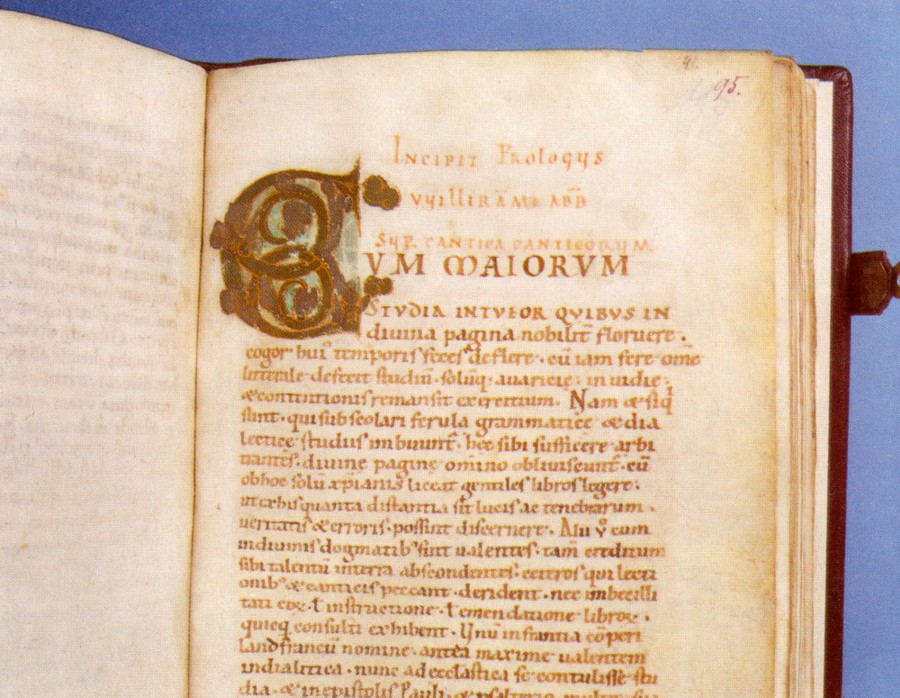 95.
INCIPIT PROLOGUS
VVILLIRAMI ABB
SUP. CANTICA CANTICORUM.
CUM MAIORUM
STUDIA INTUEOR QUIBUS IN
diuina pagina nobilit̄ floruere.
cogor hui᾽ temporis feces deflere. cū iam fere om̄e
litterale defecit studiū. solūq; auaricię. inuidię.
& contentionis remansit exercitium. Nam & siq̇
sunt. qui sub scolari ferula grammaticę & dia
lecticę studiis imbuunt᾽. hęc sibi sufficere arbi
trantes. diuinę paginę om̄ino obliuiscunt᾽. cū
ob hoc solū xp̄ianis liceat gentiles libros legere.
ut ex his quanta distantia sit lucis ac tenebrarum.
ueritatis & erroris. possint discernere. Alii v̊ cum
in diuinis dogmatib; sint ualentes. tam̄ creditum
sibi talentū in terra abscondentes. cęteros qui lecti
onib; & canticis peccant. derident. nec imbecilli
tati eoꝝ ł instructione. ł emendatione libroꝝ
quicq̄ consulti exhibent. Unū in francia cōperi
landfrancū nomine. antea maxime ualentem
in dialectica. nunc ad ecclesiastica se contulisse stu
dia. & in epistolis Pauli & psalterio multos sui